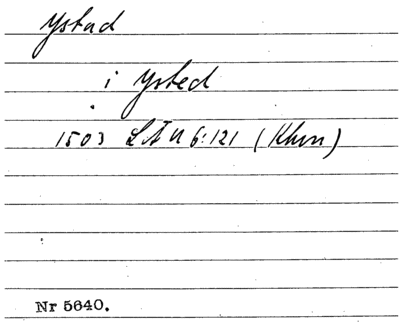 Ystad
i Ysted
1503 LÄU 6:121 (Khvn)
Nr 5640.